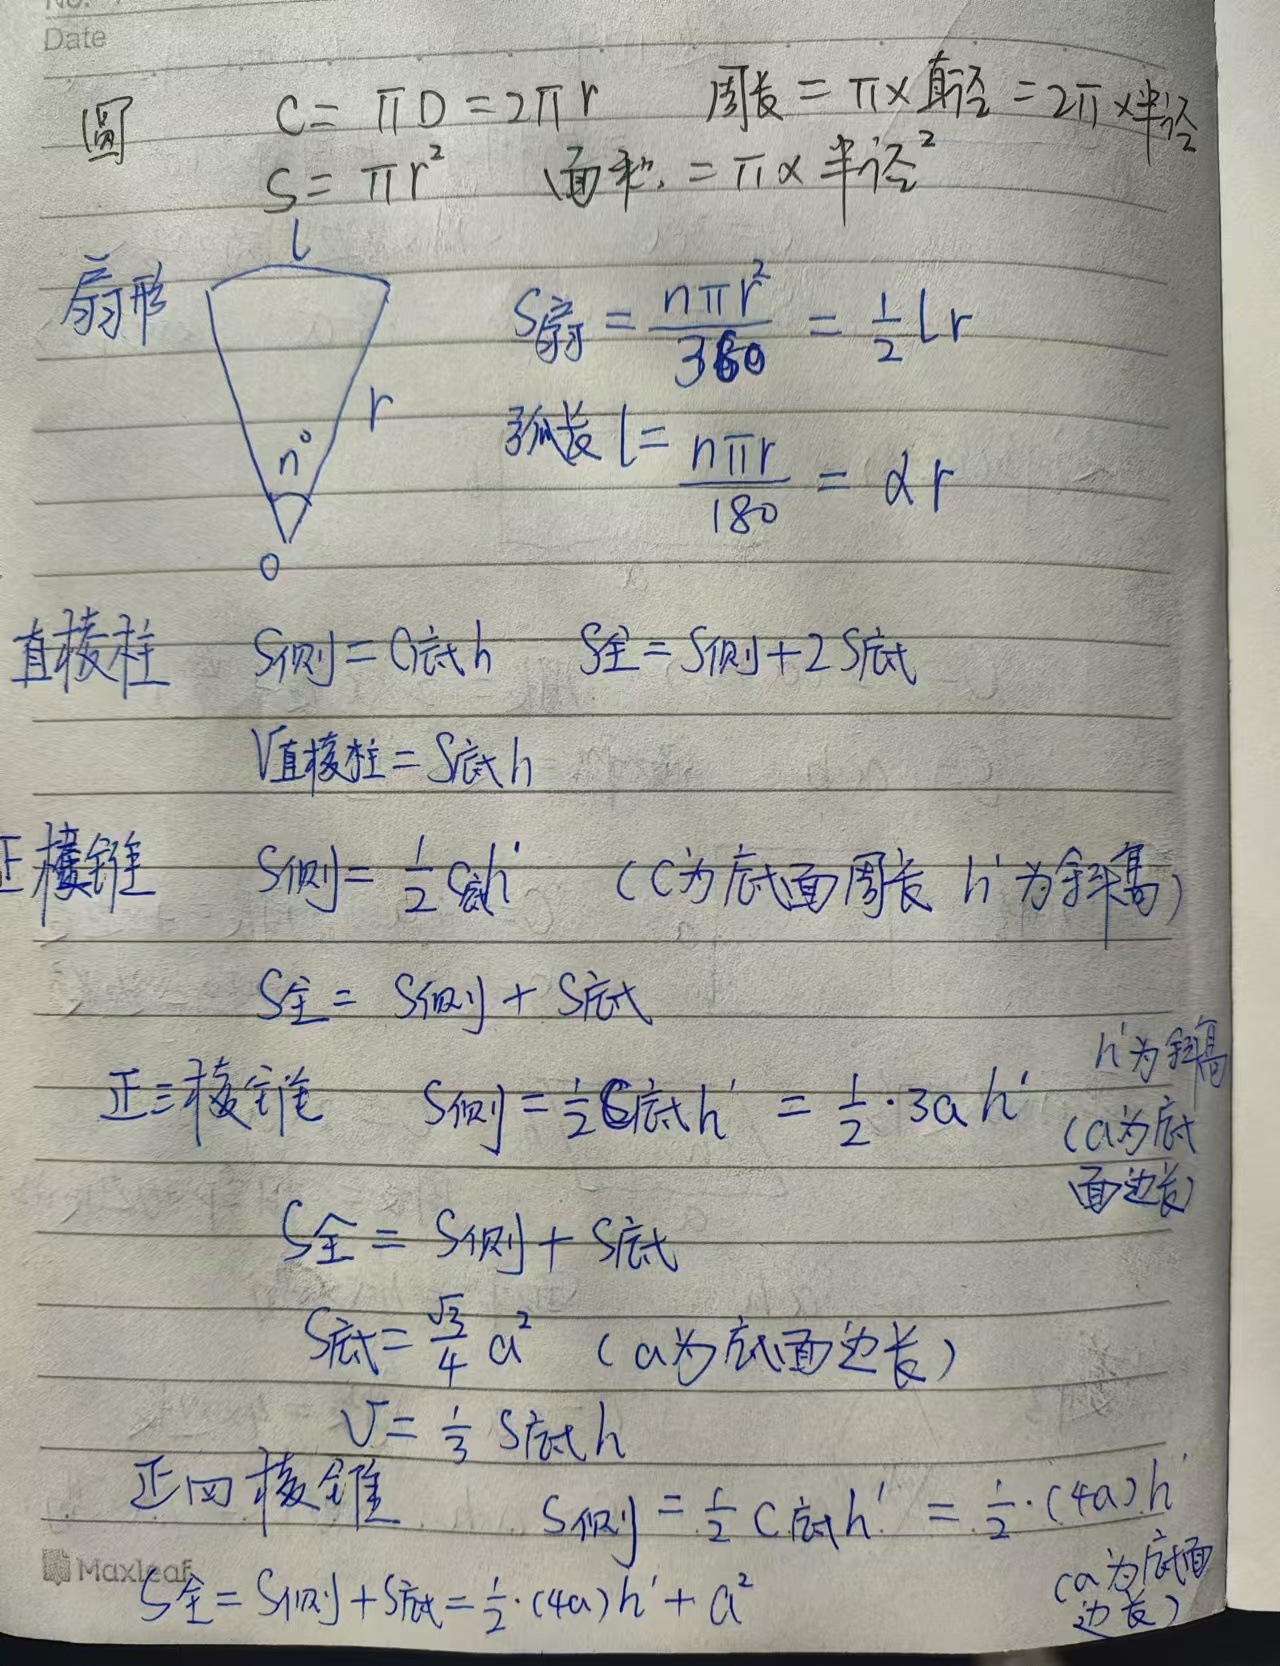 No.
Date
圆 C = πD = 2πr 周长 = π×直径 = 2π×半径
S = πr² 面积 = π×半径²
l
扇形 S扇 = nπr²/360 = 1/2 lr
r
弧长 l = nπr/180 = αr
n°
O
直棱柱 S侧 = C底h S全 = S侧 + 2S底
V直棱柱 = S底h
正棱锥 S侧 = 1/2 C底h' (C为底面周长 h'为斜高)
S全 = S侧 + S底
h'为斜高
正三棱锥 S侧 = 1/2 C底h' = 1/2·3ah' (a为底
面边长)
S全 = S侧 + S底
S底 = √3/4 a² (a为底面边长)
V = 1/3 S底h
正四棱锥 S侧 = 1/2 C底h' = 1/2·(4a)h'
Maxleaf
S全 = S侧 + S底 = 1/2·(4a)h' + a² (a为底面
边长)